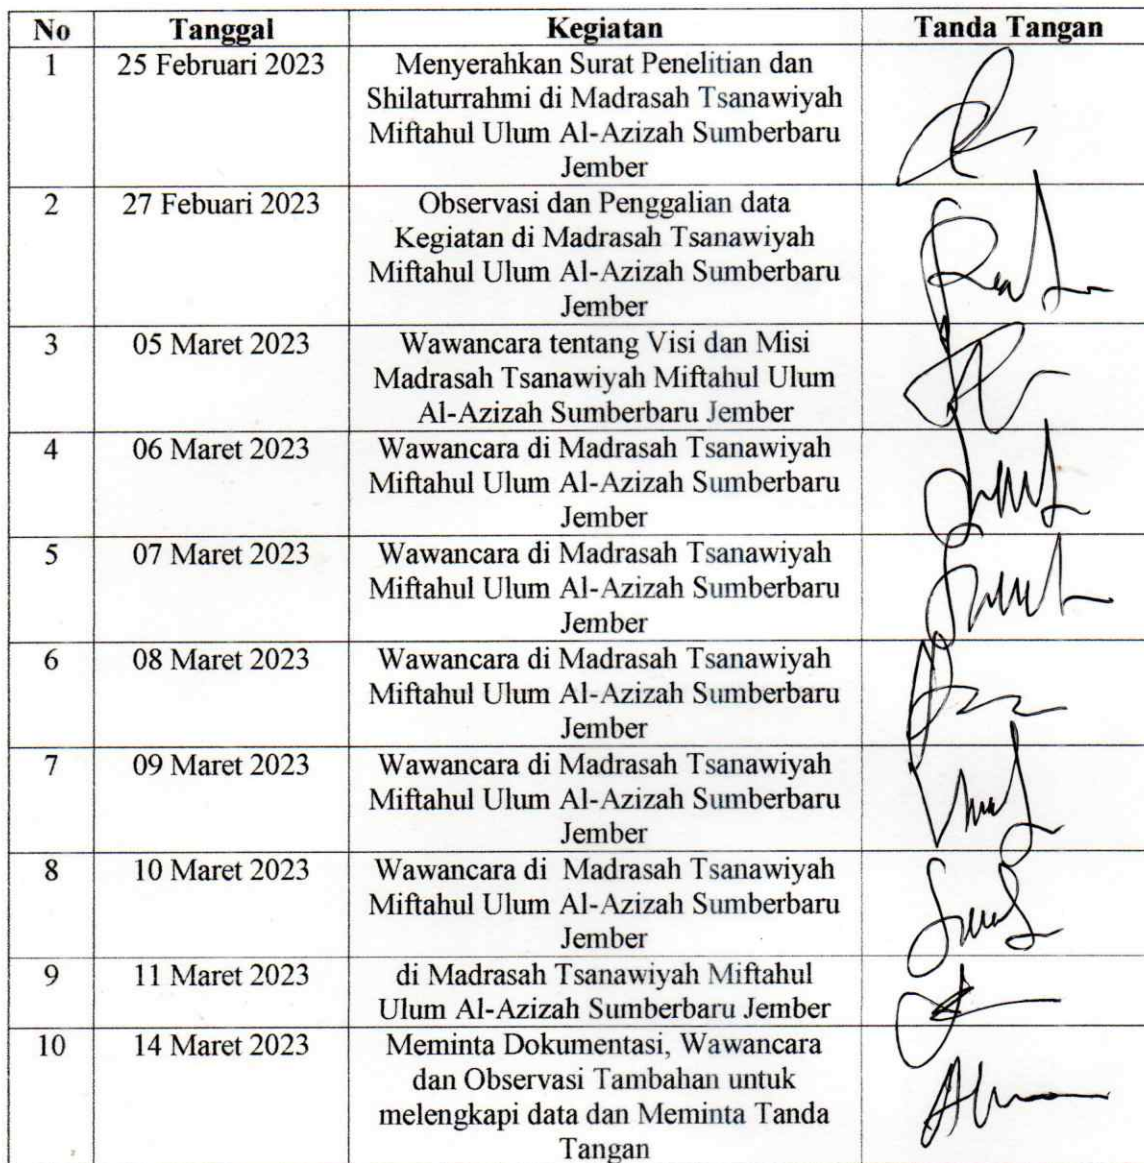 No Tanggal Kegiatan Tanda Tangan
1 25 Februari 2023 Menyerahkan Surat Penelitian dan
Shilaturrahmi di Madrasah Tsanawiyah
Miftahul Ulum Al-Azizah Sumberbaru
Jember
2 27 Febuari 2023 Observasi dan Penggalian data
Kegiatan di Madrasah Tsanawiyah
Miftahul Ulum Al-Azizah Sumberbaru
Jember
3 05 Maret 2023 Wawancara tentang Visi dan Misi
Madrasah Tsanawiyah Miftahul Ulum
Al-Azizah Sumberbaru Jember
4 06 Maret 2023 Wawancara di Madrasah Tsanawiyah
Miftahul Ulum Al-Azizah Sumberbaru
Jember
5 07 Maret 2023 Wawancara di Madrasah Tsanawiyah
Miftahul Ulum Al-Azizah Sumberbaru
Jember
6 08 Maret 2023 Wawancara di Madrasah Tsanawiyah
Miftahul Ulum Al-Azizah Sumberbaru
Jember
7 09 Maret 2023 Wawancara di Madrasah Tsanawiyah
Miftahul Ulum Al-Azizah Sumberbaru
Jember
8 10 Maret 2023 Wawancara di Madrasah Tsanawiyah
Miftahul Ulum Al-Azizah Sumberbaru
Jember
9 11 Maret 2023 di Madrasah Tsanawiyah Miftahul
Ulum Al-Azizah Sumberbaru Jember
10 14 Maret 2023 Meminta Dokumentasi, Wawancara
dan Observasi Tambahan untuk
melengkapi data dan Meminta Tanda
Tangan